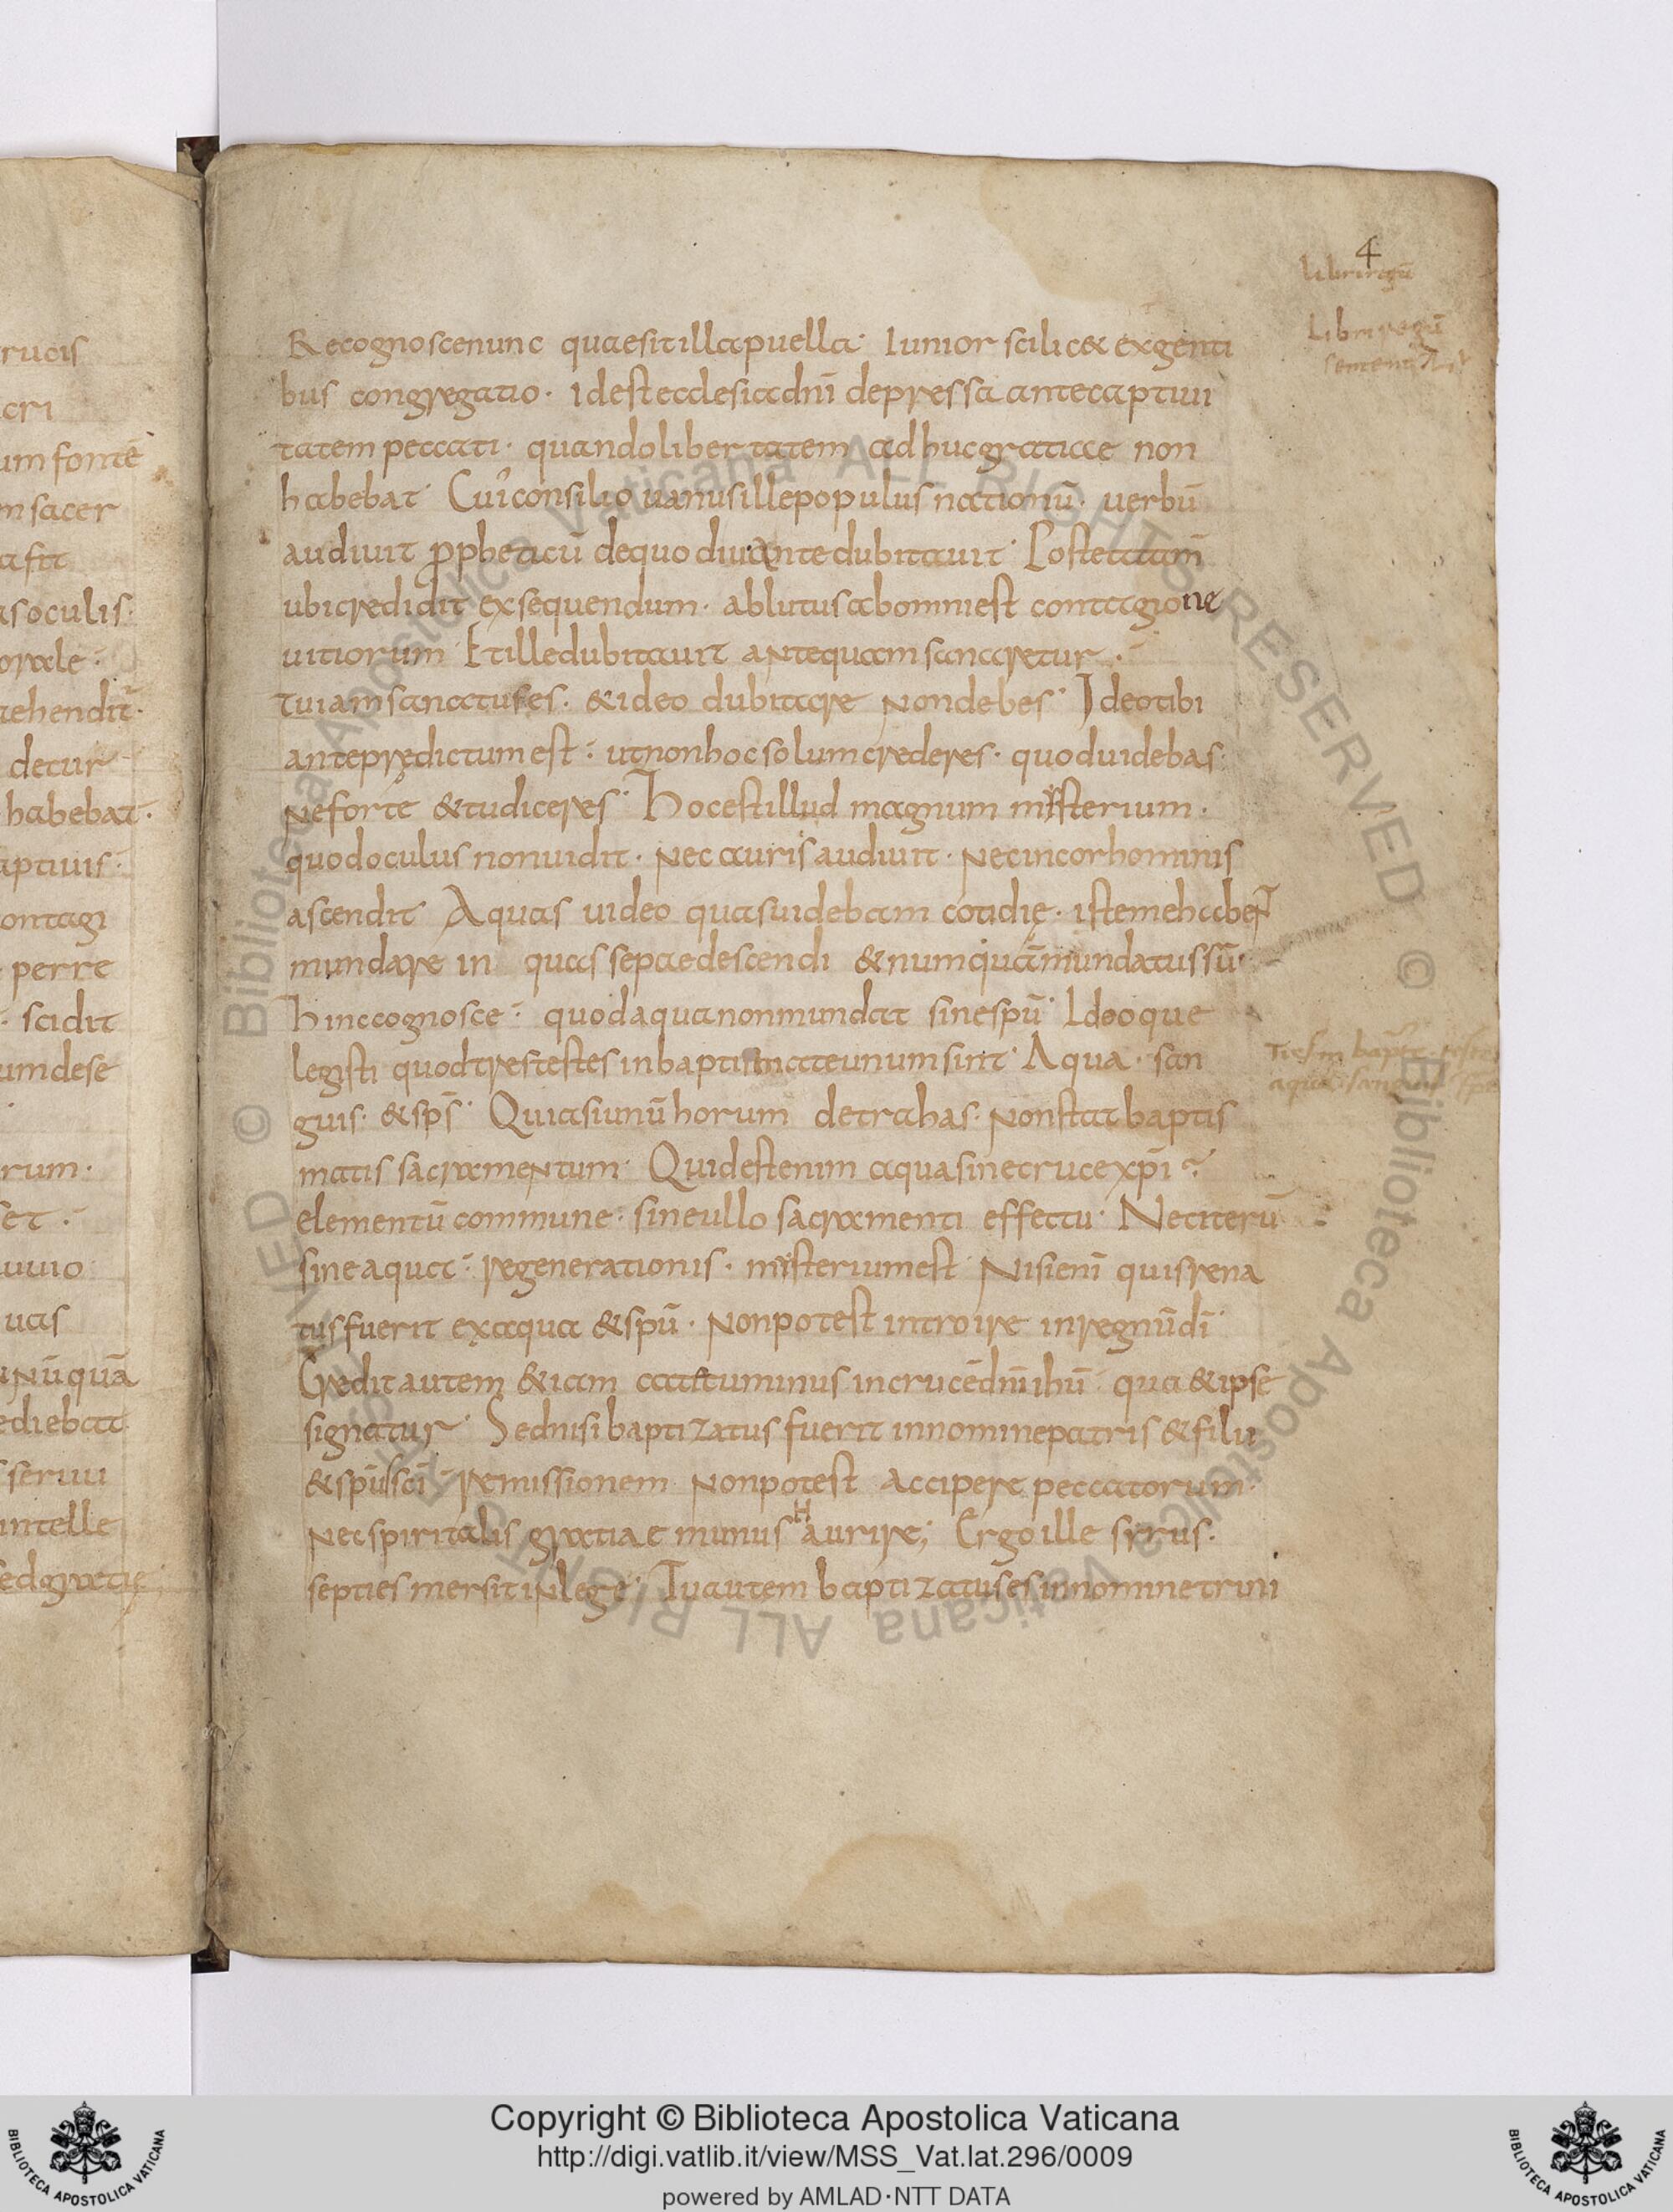 4
libri regū
Libri regū
rucis
cri
um fontē
m sacer
asoculis
orale
rehendit̄
detur
habebat
aptiuis
ontagi
perre
scidit
umdese
rum
set
uuio
uas
nūquā
ediebat
seruu
intelle
sedgratię
Recognosce nunc quae sit illa puella· Iunior scilic& exgenti
bus congregatio· Id est ecclesia dnī depressa ante captiui
tatem peccati· quando libertatem adhuc gratiae non
habebat· Cuius consilio uanus ille populus nationū· uerbū
audiuit propheticū de quo diu ante dubitauit· Postea tam̄
ubi credidit exsequendum· ablutus ab omni est contagione
uitiorum Et ille dubitauit antequam sanaretur·
tu iam sanatus es· & ideo dubitare non debes· Ideo tibi
ante prędictum est· ut non hoc solum crederes· quod uidebas·
ne forte & tu diceres· Hoc est illud magnum misterium·
quod oculus non uidit· nec auris audiuit· nec in cor hominis
ascendit· Aquas uideo quas uidebam cotidię· iste me habet
mundare in quas sepae descendi & numquā mundatus sū·
Hinc cognosce· quod aqua non mundat sine spū· Ideoque
legisti quod tres testes in baptismate unum sint· Aqua· san
guis· & sps̄· Quia si unū horum detrahas· non stat baptis
matis sacramentum· Quid est enim aqua sine cruce xpī·
elementū commune· sine ullo sacramenti effectu· Nec iterū
sine aqua· regenerationis· misterium est· Nisi enī quis rena
tus fuerit ex aqua & spū· non potest introire in regnū dī·
Credit autem & iam catecuminus in crucē dnī ihū· qua & ipse
signatur· Sed nisi baptizatus fuerit in nomine patris & filii
& spūs scī· remissionem non potest accipere peccatorum·
nec spiritalis gratiae munus haurire; Ergo ille syrus·
septies mersit in lege· Tu autem baptizatus es in nomine trini
Copyright © Biblioteca Apostolica Vaticana
http://digi.vatlib.it/view/MSS_Vat.lat.296/0009
powered by AMLAD·NTT DATA
BIBLIOTECA APOSTOLICA VATICANA
BIBLIOTECA APOSTOLICA VATICANA